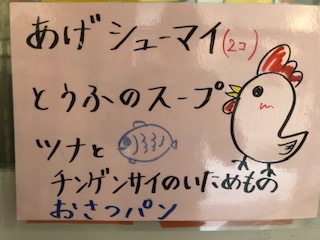 あげシューマイ(2コ)
とうふのスープ
ツナと
チンゲンサイのいためもの
おさつパン